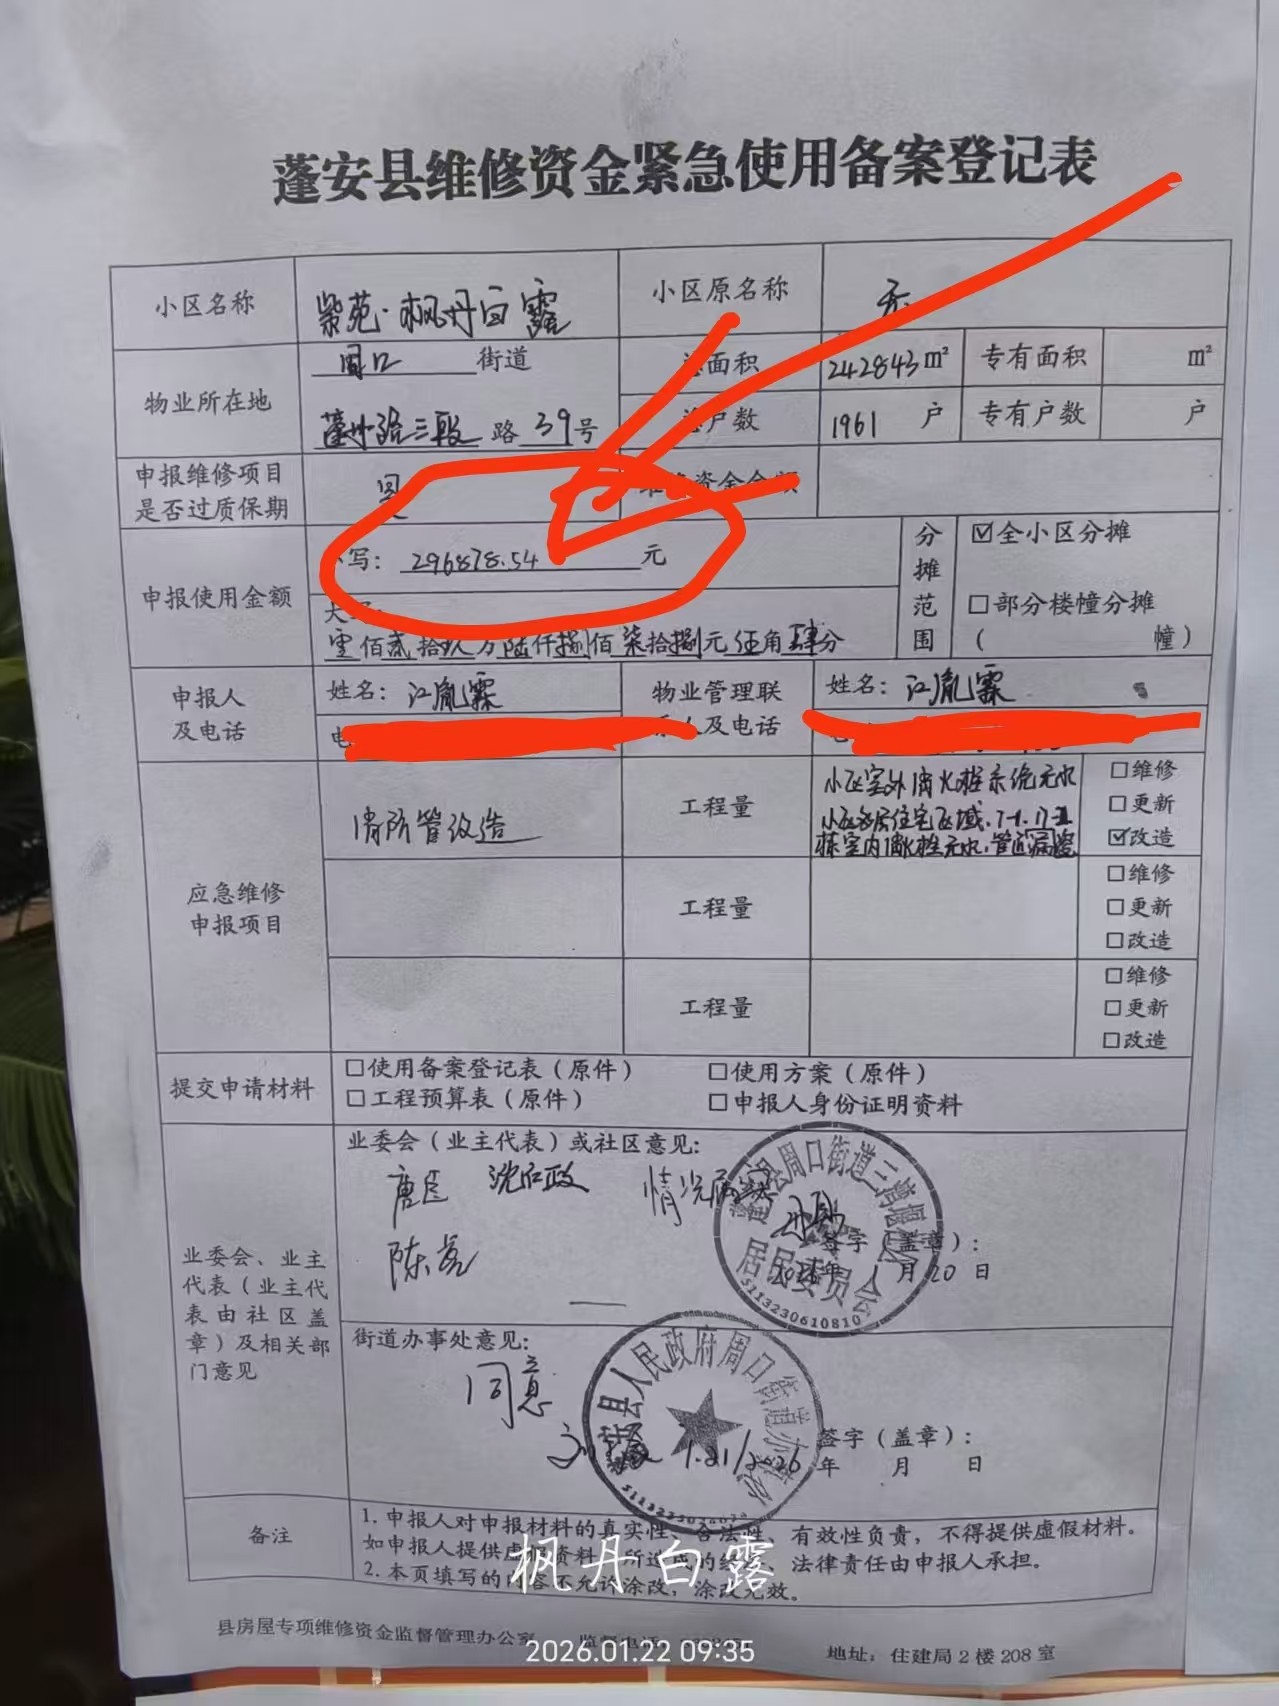 蓬安县维修资金紧急使用备案登记表
小区名称 紫苑·枫丹白露 小区原名称 无
物业所在地 周口 街道 总面积 242843 m² 专有面积 m²
路 39号 总户数 1961 户 专有户数 户
申报维修项目是否过质保期 是 维修资金余额
申报使用金额 小写: 296878.54 元
大写:
零佰贰拾玖万陆仟捌佰柒拾捌元伍角肆分
分摊范围 ☑全小区分摊
□部分楼幢分摊
( 幢)
申报人及电话 姓名: 江胤霖 物业管理联系人及电话 姓名: 江胤霖
应急维修申报项目 消防管改造 工程量 小区室外消火栓系统无水
栋室内消火栓无水,管道漏
□维修
□更新
☑改造
工程量
□维修
□更新
□改造
工程量
□维修
□更新
□改造
提交申请材料 □使用备案登记表(原件) □使用方案(原件)
□工程预算表(原件) □申报人身份证明资料
业委会、业主代表(业主代表由社区盖章)及相关部门意见
业委会(业主代表)或社区意见:
情况属实
签字(盖章):
2026年1月20日
周口街道三
居民委员会
5113230610810
街道办事处意见:
同意
县人民政府周口街道办事处
1.21/2026
签字(盖章):
年 月 日
备注
1.申报人对申报材料的真实性、合法性、有效性负责,不得提供虚假材料。
如申报人提供虚假资料 所造成的经 、法律责任由申报人承担。
2.本页填写的内容不允许涂改,涂改无效。
枫丹白露
县房屋专项维修资金监督管理办公室 监督电话: 地址: 住建局2楼208室
2026.01.22 09:35